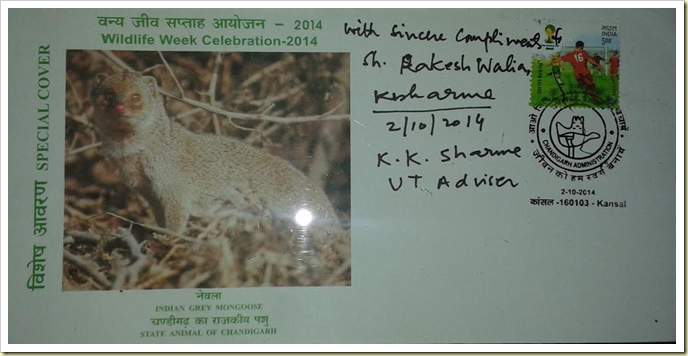 वन्य जीव सप्ताह आयोजन - 2014
Wildlife Week Celebration-2014
विशेष आवरण SPECIAL COVER
नेवला
INDIAN GREY MONGOOSE
चण्डीगढ़ का राजकीय पशु
STATE ANIMAL OF CHANDIGARH
With sincere compliments to
Sh. Rakesh Walia
KKSharma
2/10/2014
K. K. Sharma
UT Adviser
भारत
INDIA
500
16
CHANDIGARH ADMINISTRATION
जीवन को हम स्वर्ग बनायें
2-10-2014
कांसल -160103 - Kansal